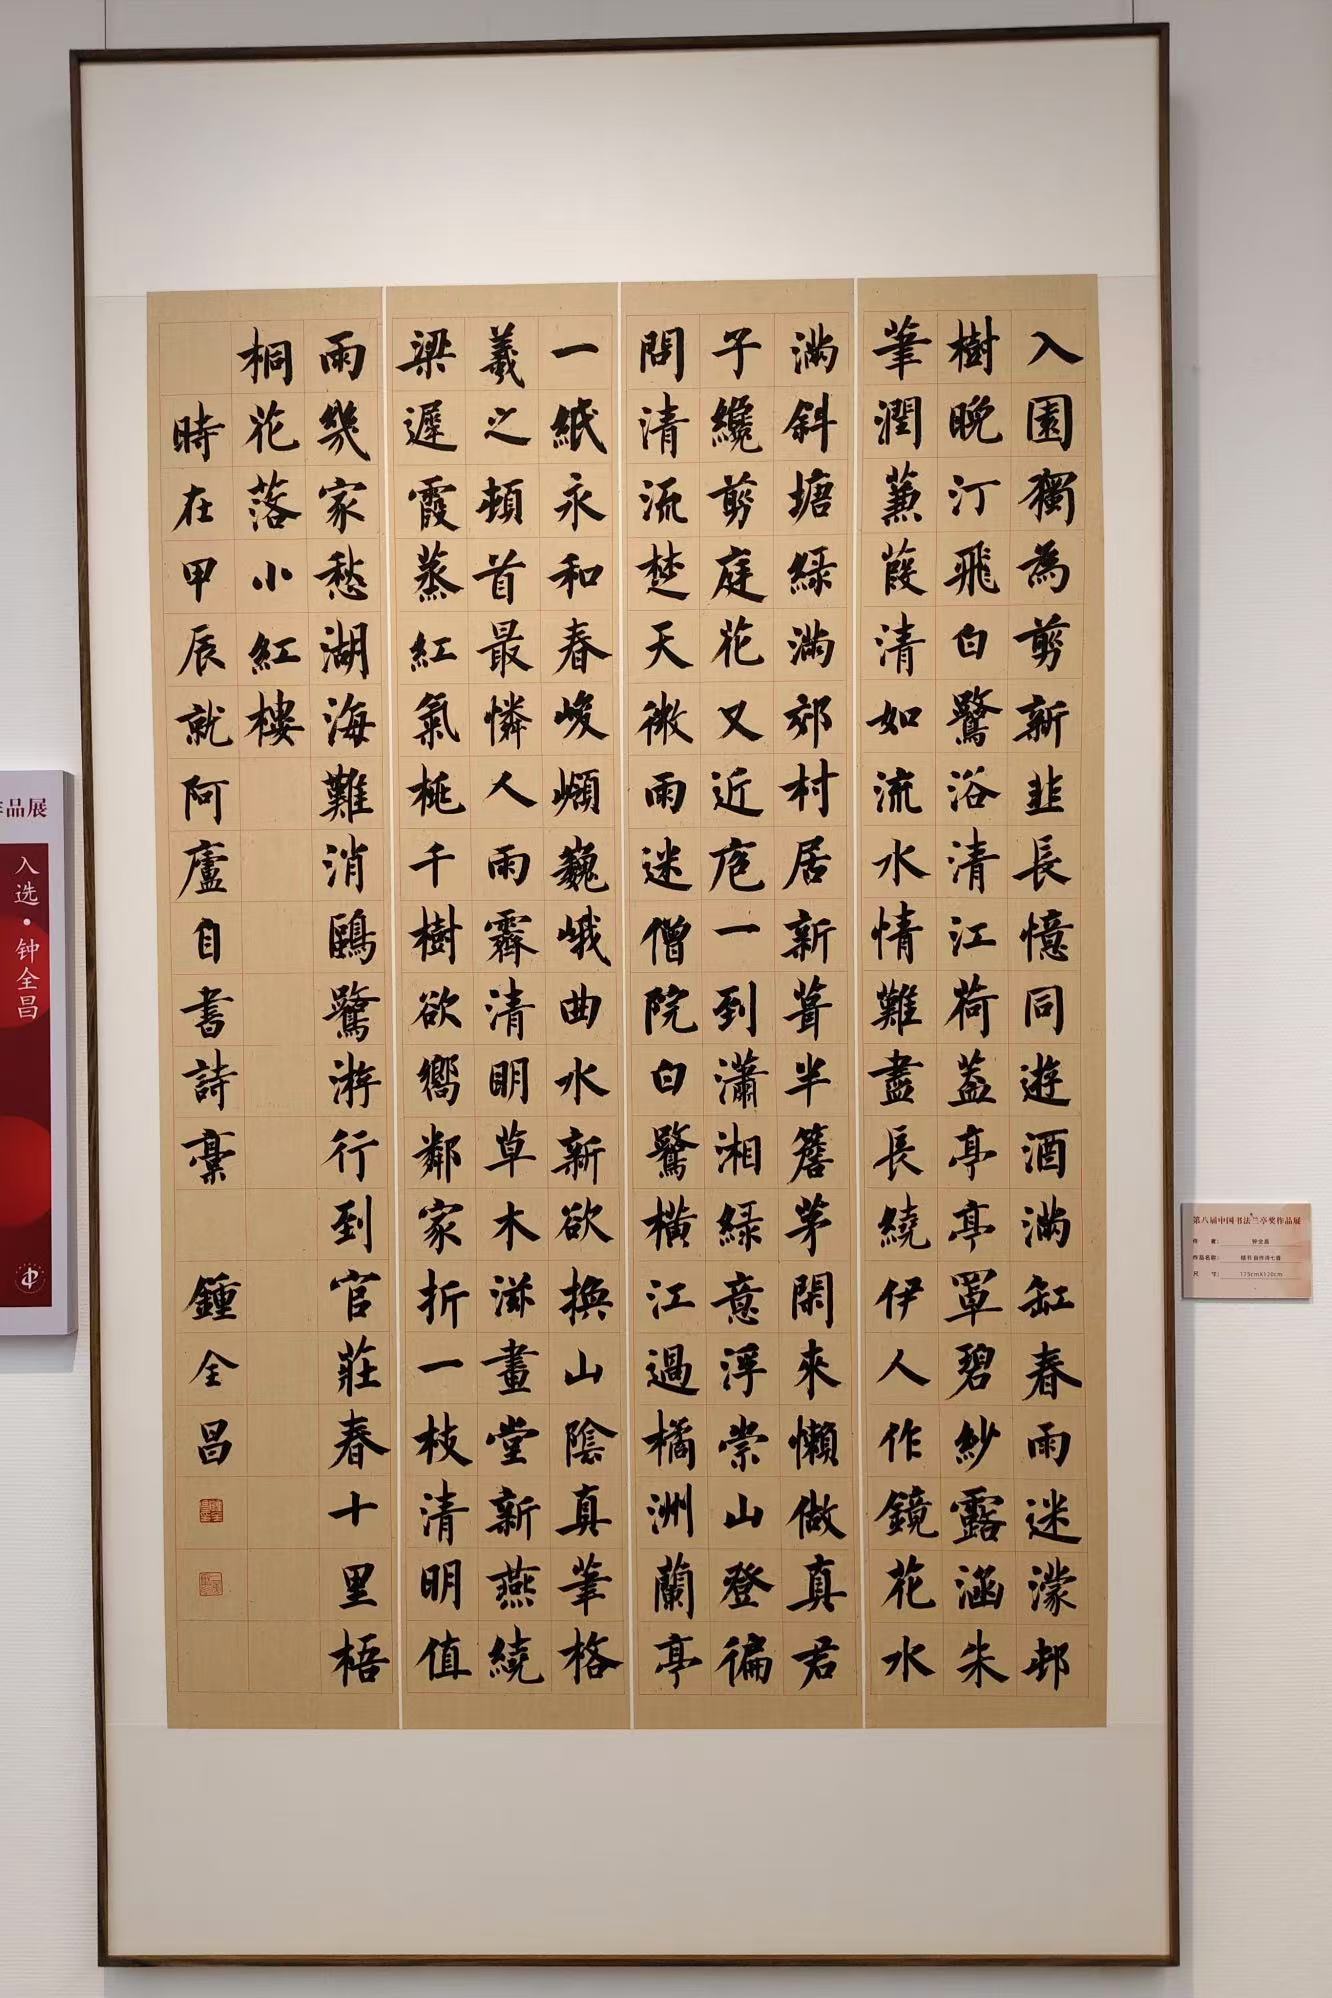 入園獨為剪新韭長憶同遊酒滿缸春雨迷濛邨
樹晚汀飛白鷺浴清江荷蓋亭亭罩碧紗露涵朱
筆潤蒹葭清如流水情難盡長繞伊人作鏡花水
滿斜塘綠滿郊村居新葺半簷茅閑來懶做真君
子纔剪庭花又近庖一到瀟湘綠意浮崇山登徧
問清流楚天微雨迷僧院白鷺橫江過橘洲蘭亭
一紙永和春峻嶺巍峨曲水新欲換山陰真筆格
羲之頓首最憐人雨霽清明草木滋畫堂新燕繞
梁遲霞蒸紅氣桃千樹欲嚮鄰家折一枝清明值
雨幾家愁湖海難消鷗鷺游行到官莊春十里梧
桐花落小紅樓
時在甲辰就阿廬自書詩稾 鍾全昌
作品展
入选·钟全昌
第八届中国书法兰亭奖作品展
作 者： 钟全昌
作品名称： 楷书 自作诗七首
尺 寸： 175cmX120cm